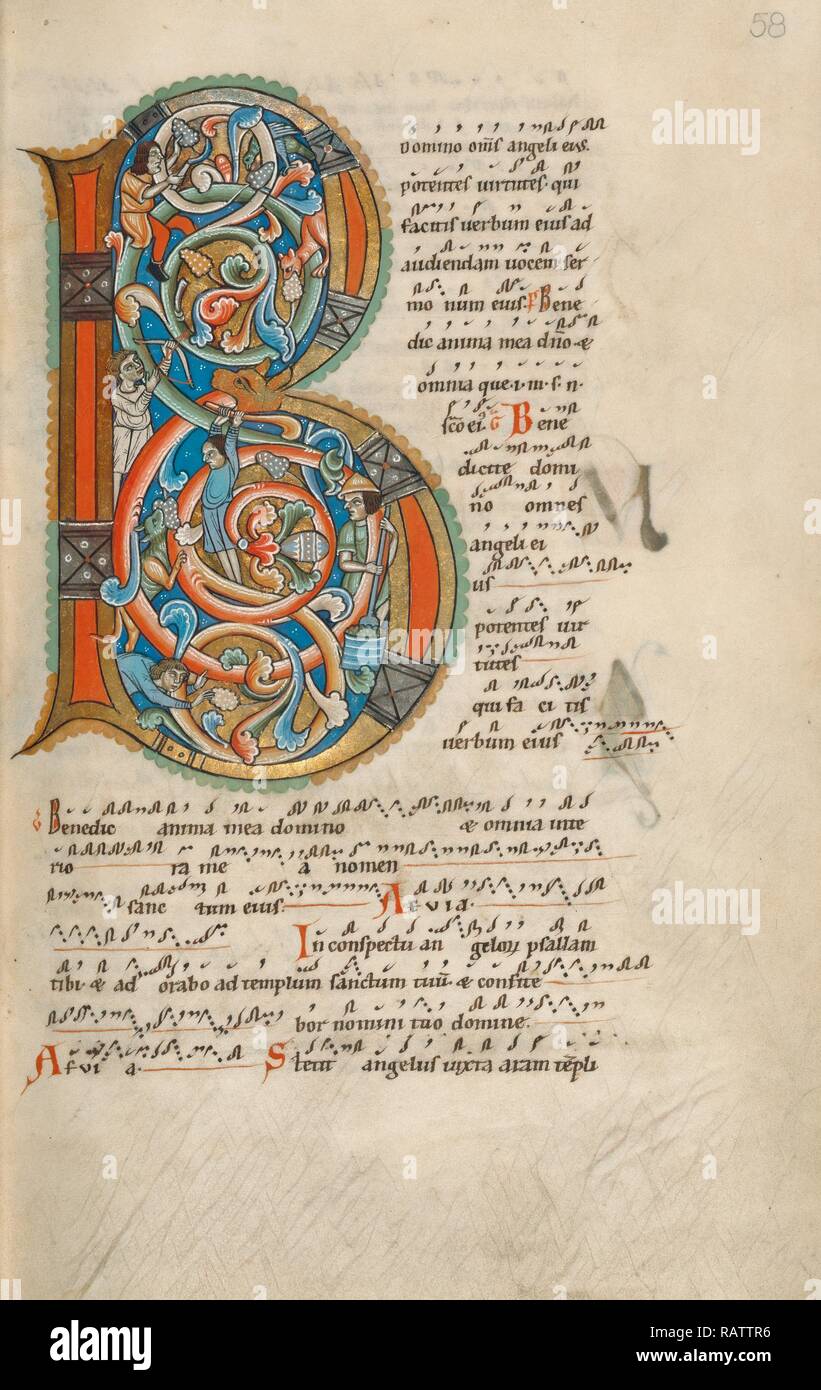 58
B
Domino om̅s angeli eius.
potentes uirtutes qui
facitis uerbum eius ad
audiendam uocem ser
mo num eius. P Bene
dic anima mea dño &
omnia que.i.m.s.n.
G Bene
dicite domi
no omnes
angeli ei
us
potentes uir
tutes
qui fa ci tis
uerbum eius
G Benedic anima mea domino & omnia inte
rio ra me a nomen
sanc tum eius. Aevia.
In conspectu an geloꝝ psallam
tibi & ad orabo ad templum sanctum tuũ. & confite
bor nomini tuo domine.
Aevi a. Stetit angelus iuxta aram tẽpli
alamy
Image ID: RATTR6
www.alamy.com